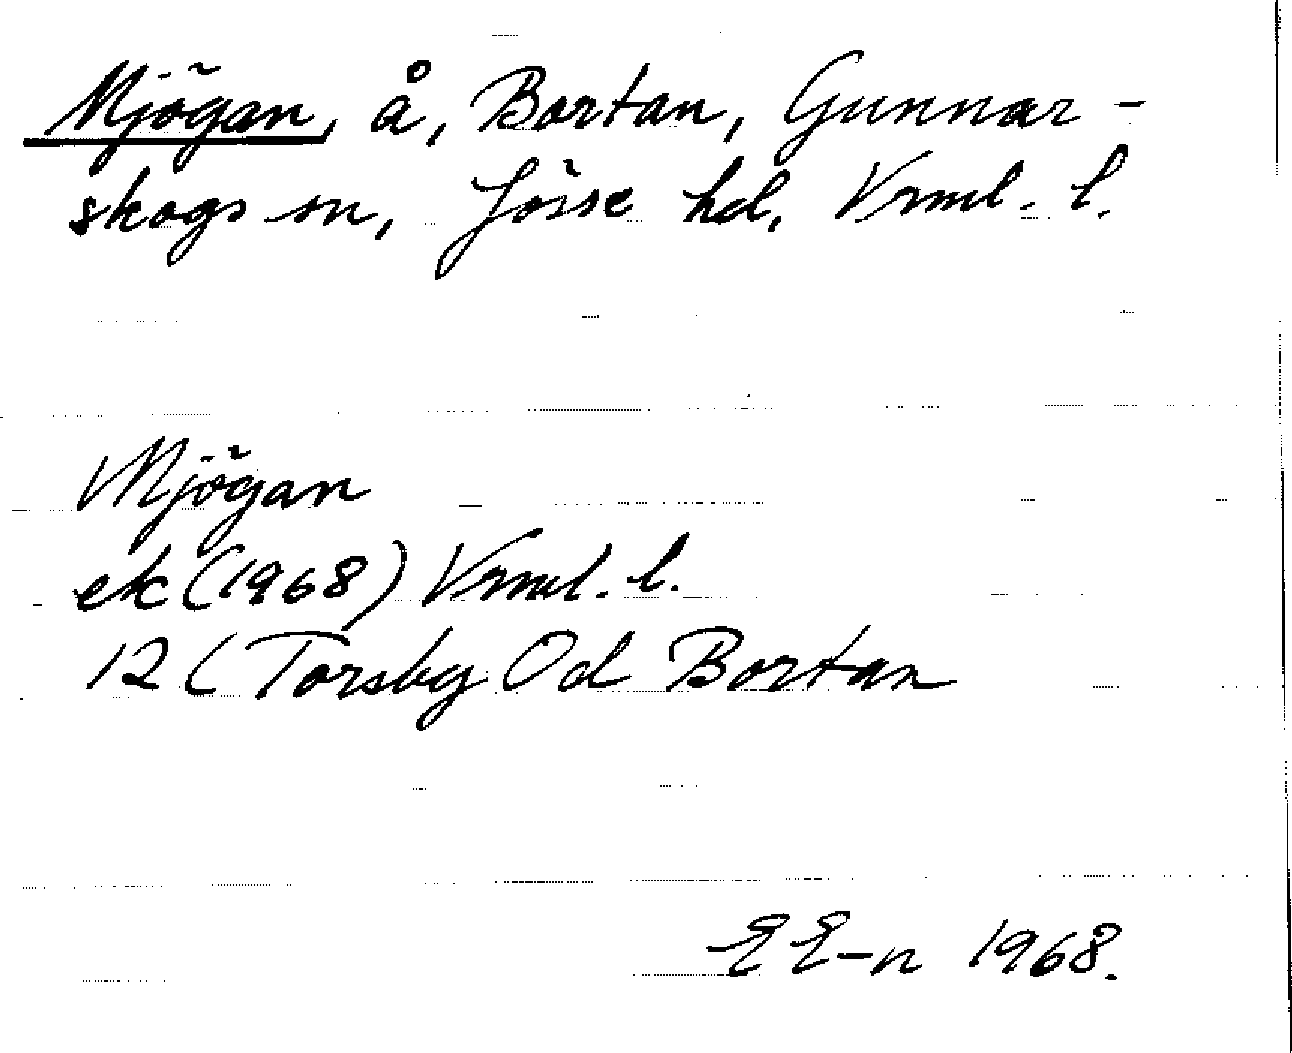 Mjögan, å, Bortan, Gunnar-
skogs sn, Jösse hd, Vrml. l.
Mjögan
ek (1968) Vrml. l.
12 ( Torsby Od Bortan
EE-n 1968.